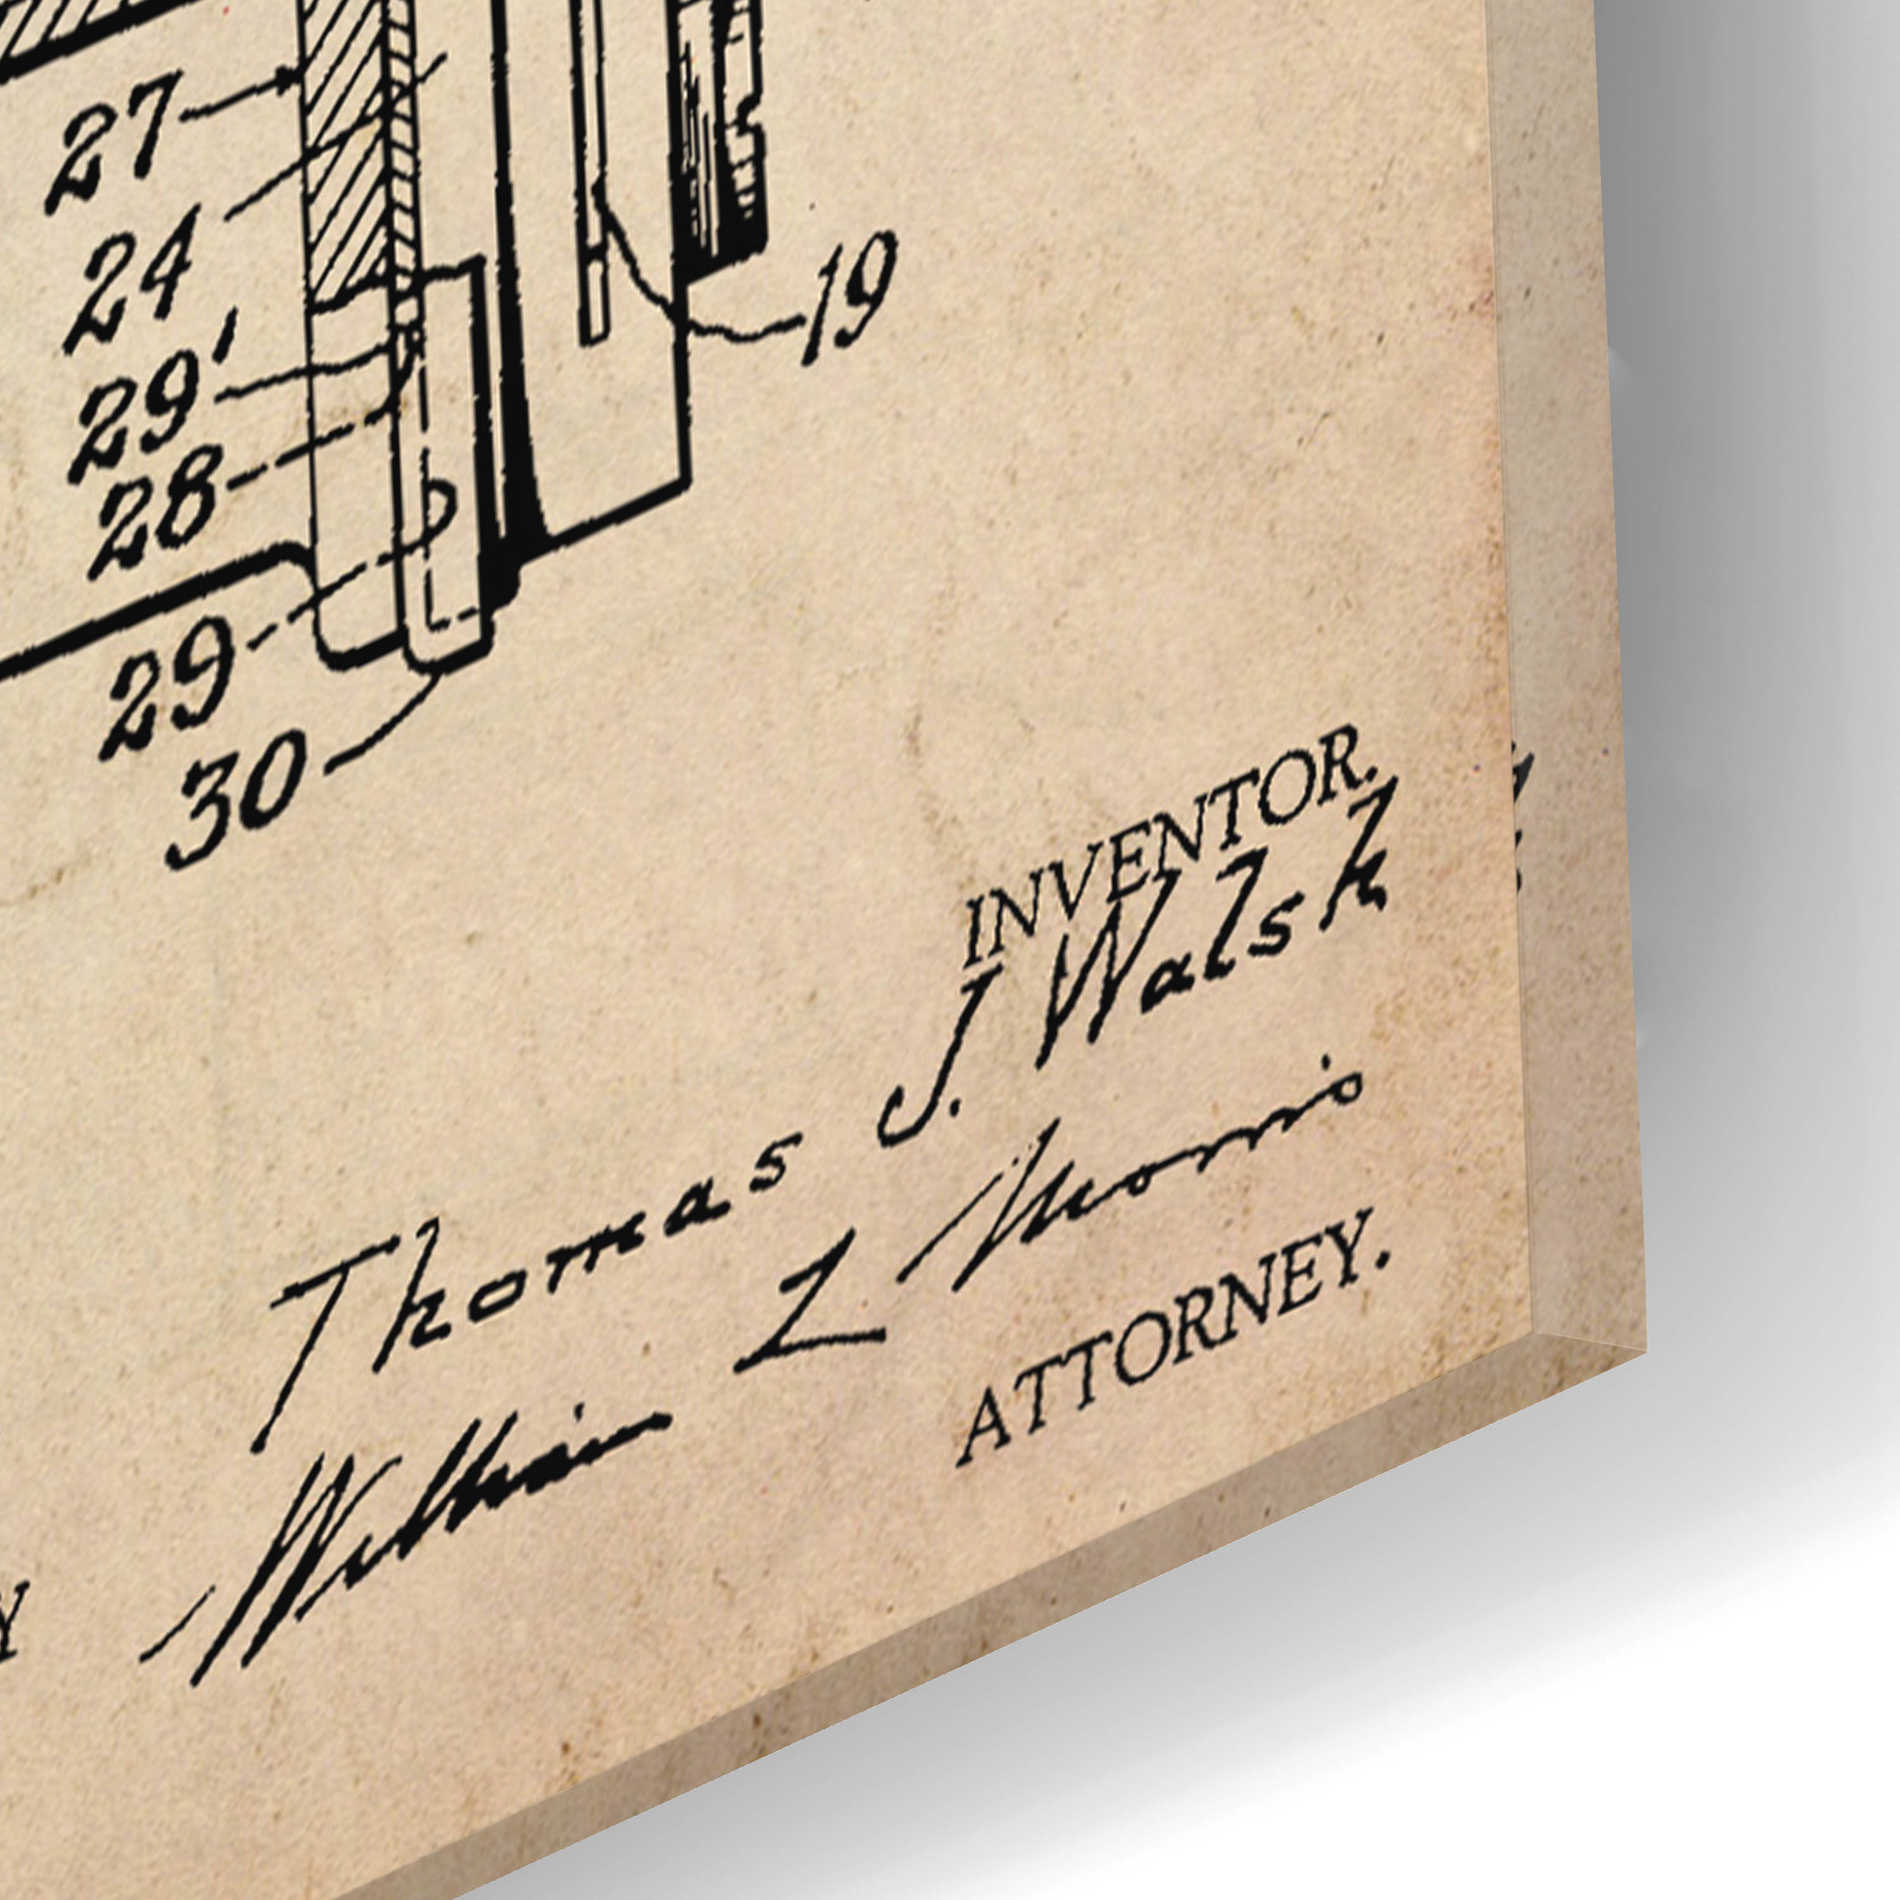 27
24
29'
28
29
30
19
INVENTOR.
Thomas J. Walsh
Y William L Morris
ATTORNEY.